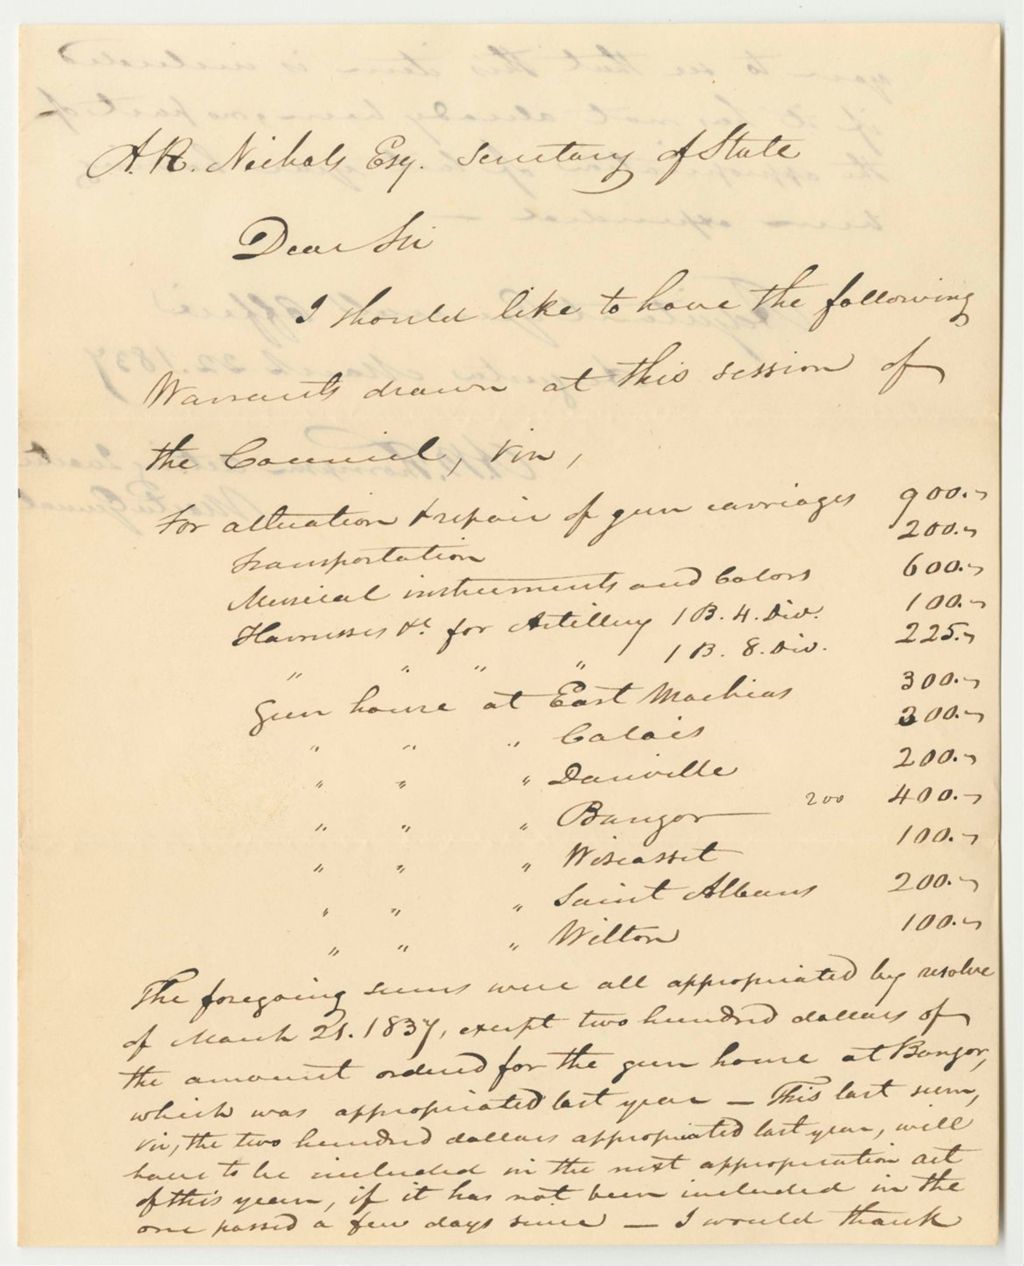 A. R. Nichols Esq. Secretary of State
Dear Sir
I should like to have the following
Warrants drawn at this session of
the Council, viz,
For alteration & repair of gun carriages 900.-
Transportation 200.-
Musical instruments and Colors 600.-
Harnesses &c for Artillery 1 B. 4. Div. 100.-
" " " " 1 B. 8. Div. 225.-
Gun house at East Machias 300.-
" " " Calais 300.-
" " " Danville 200.-
" " " Bangor — 200 400.-
" " " Wiscasset 100.-
" " " Saint Albans 200.-
" " " Wilton 100.-
The foregoing sums were all appropriated by resolve
of March 21. 1837, except two hundred dollars of
the amount ordered for the gun house at Bangor,
which was appropriated last year — This last sum,
viz, the two hundred dollars appropriated last year, will
have to be included in the next appropriation act
of this year, if it has not been included in the
one passed a few days since — I would thank